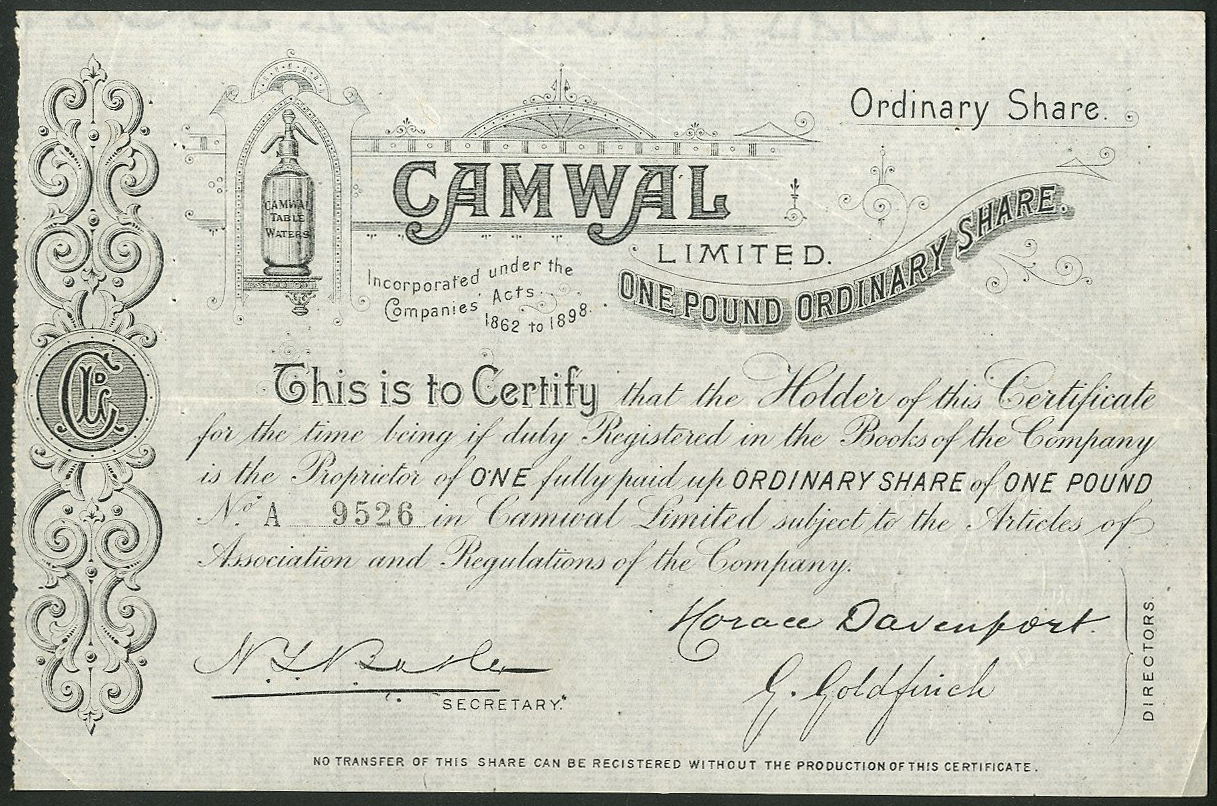 Ordinary Share.
CAMWAL
TABLE
WATERS
CAMWAL
LIMITED.
Incorporated under the
Companies' Acts.
1862 to 1898.
ONE POUND ORDINARY SHARE.
This is to Certify that the Holder of this Certificate
for the time being if duly Registered in the Books of the Company
is the Proprietor of ONE fully paid up ORDINARY SHARE of ONE POUND
No. A 9526 in Camwal Limited subject to the Articles of
Association and Regulations of the Company.
Horace Davenport.
G. Goldfinch
DIRECTORS.
SECRETARY.
NO TRANSFER OF THIS SHARE CAN BE REGISTERED WITHOUT THE PRODUCTION OF THIS CERTIFICATE.